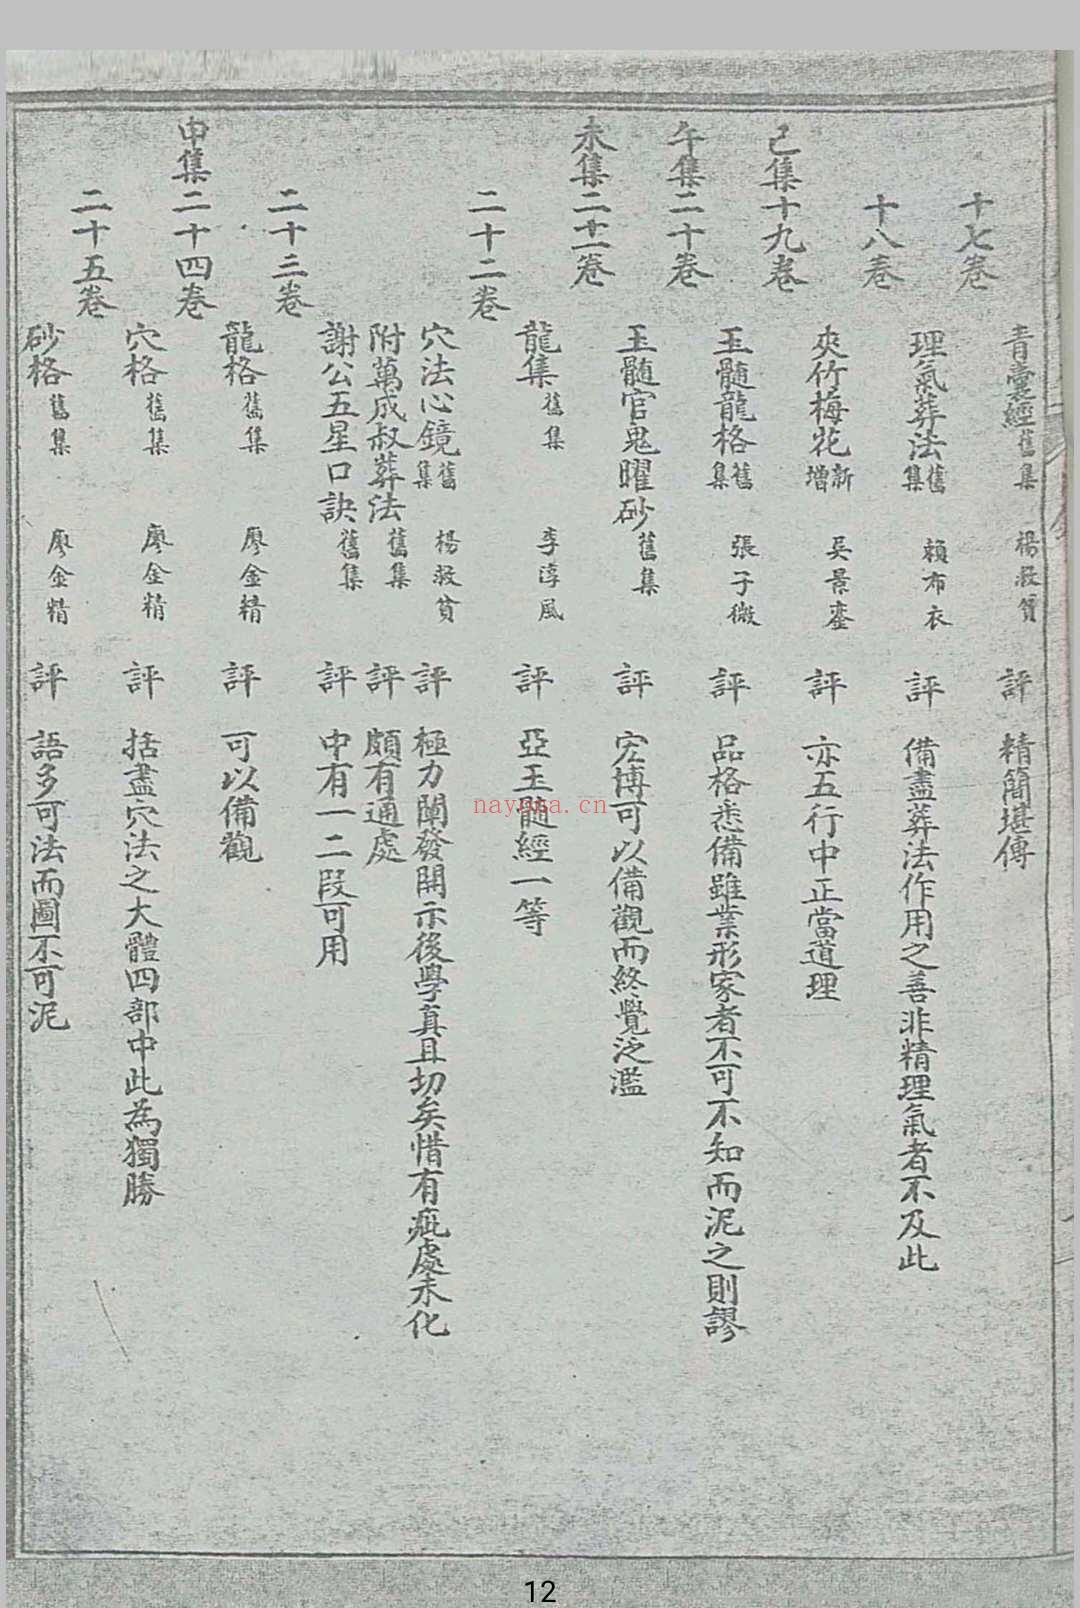 十七卷
青囊經 舊集 楊救貧 評 精簡堪傳
十八卷
理氣葬法 舊集 賴布衣 評 備盡葬法作用之善非精理氣者不及此
巳集十九卷
夾竹梅花 新增 吳景鸞 評 亦五行中正當道理
午集二十卷
玉髓龍格 舊集 張子微 評 品格悉備雖業形家者不可不知而泥之則謬
未集二十一卷
玉髓官鬼曜砂 舊集 評 宏博可以備觀而終覺泛濫
龍集 舊集 李淳風 評 亞玉髓經一等
二十二卷
穴法心鏡 舊集 楊救貧 評 極力闡發開示後學真且切矣惜有疵處未化
附萬成叔葬法 舊集 評 頗有通處
謝公五星口訣 舊集 評 中有一二段可用
二十三卷
龍格 舊集 廖金精 評 可以備觀
申集二十四卷
穴格 舊集 廖金精 評 括盡穴法之大體四部中此為獨勝
二十五卷
砂格 舊集 廖金精 評 語多可法而圖不可泥
nayona.cn
12